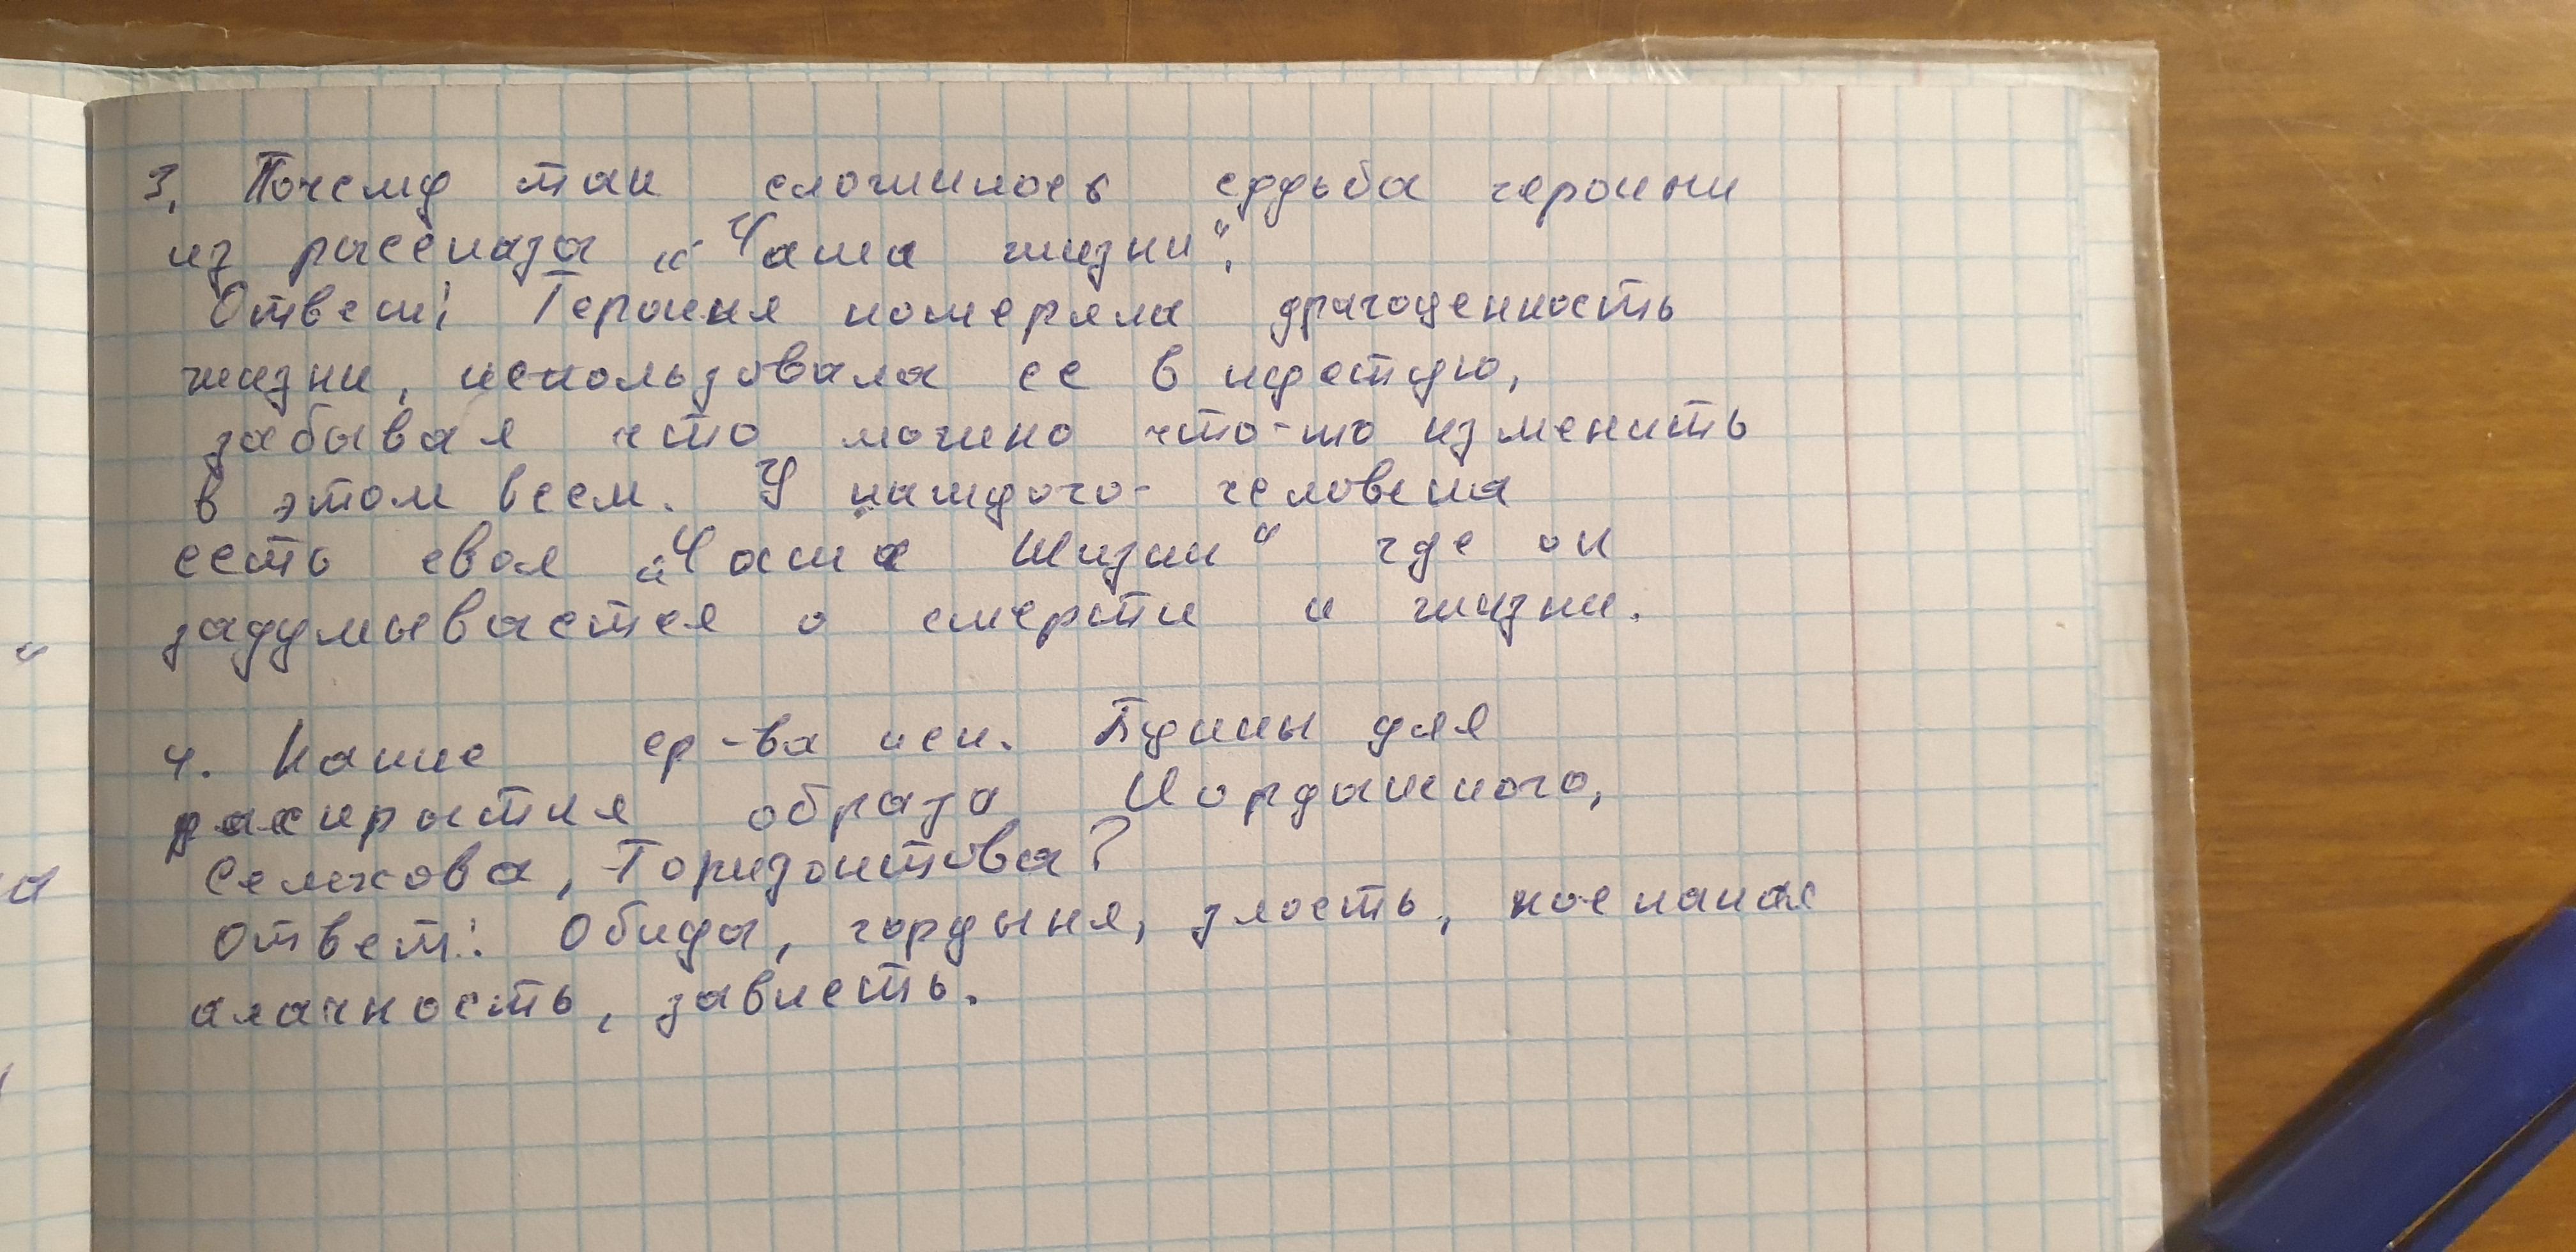 3. Почему так сложилось судьба героини
из рассказа "Чаша жизни".
Ответ: Героиня потеряла драгоценность
жизни, использовала ее в пустую,
забывая что можно что-то изменить
в этом всем. У каждого человека
есть своя "Чаша Жизни" где он
задумывается о смерти и жизни.
4. Какие ср-ва исп. Бунины для
раскрытия образа Иорданского,
Селихова, Горизонтова?
Ответ: Обида, гордыня, злость,
алачность, зависть.
"
а